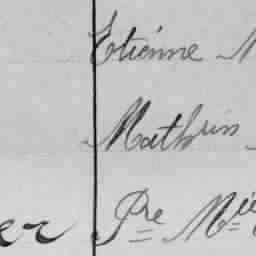 Etienne M
Mathurin
er Pre Mie